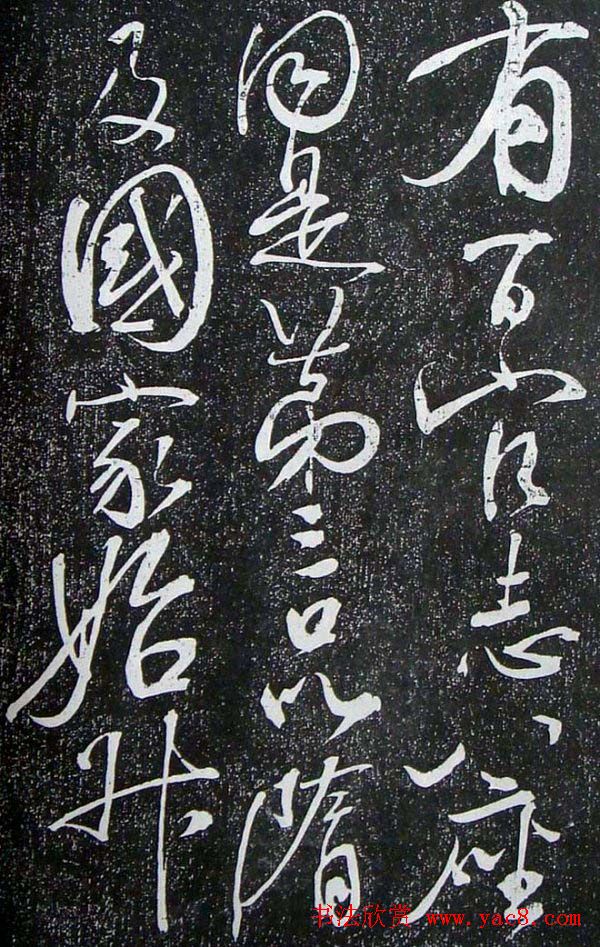 有百官志八座
同是第三品隋
及國家始升
书法欣赏 www.yac8.com